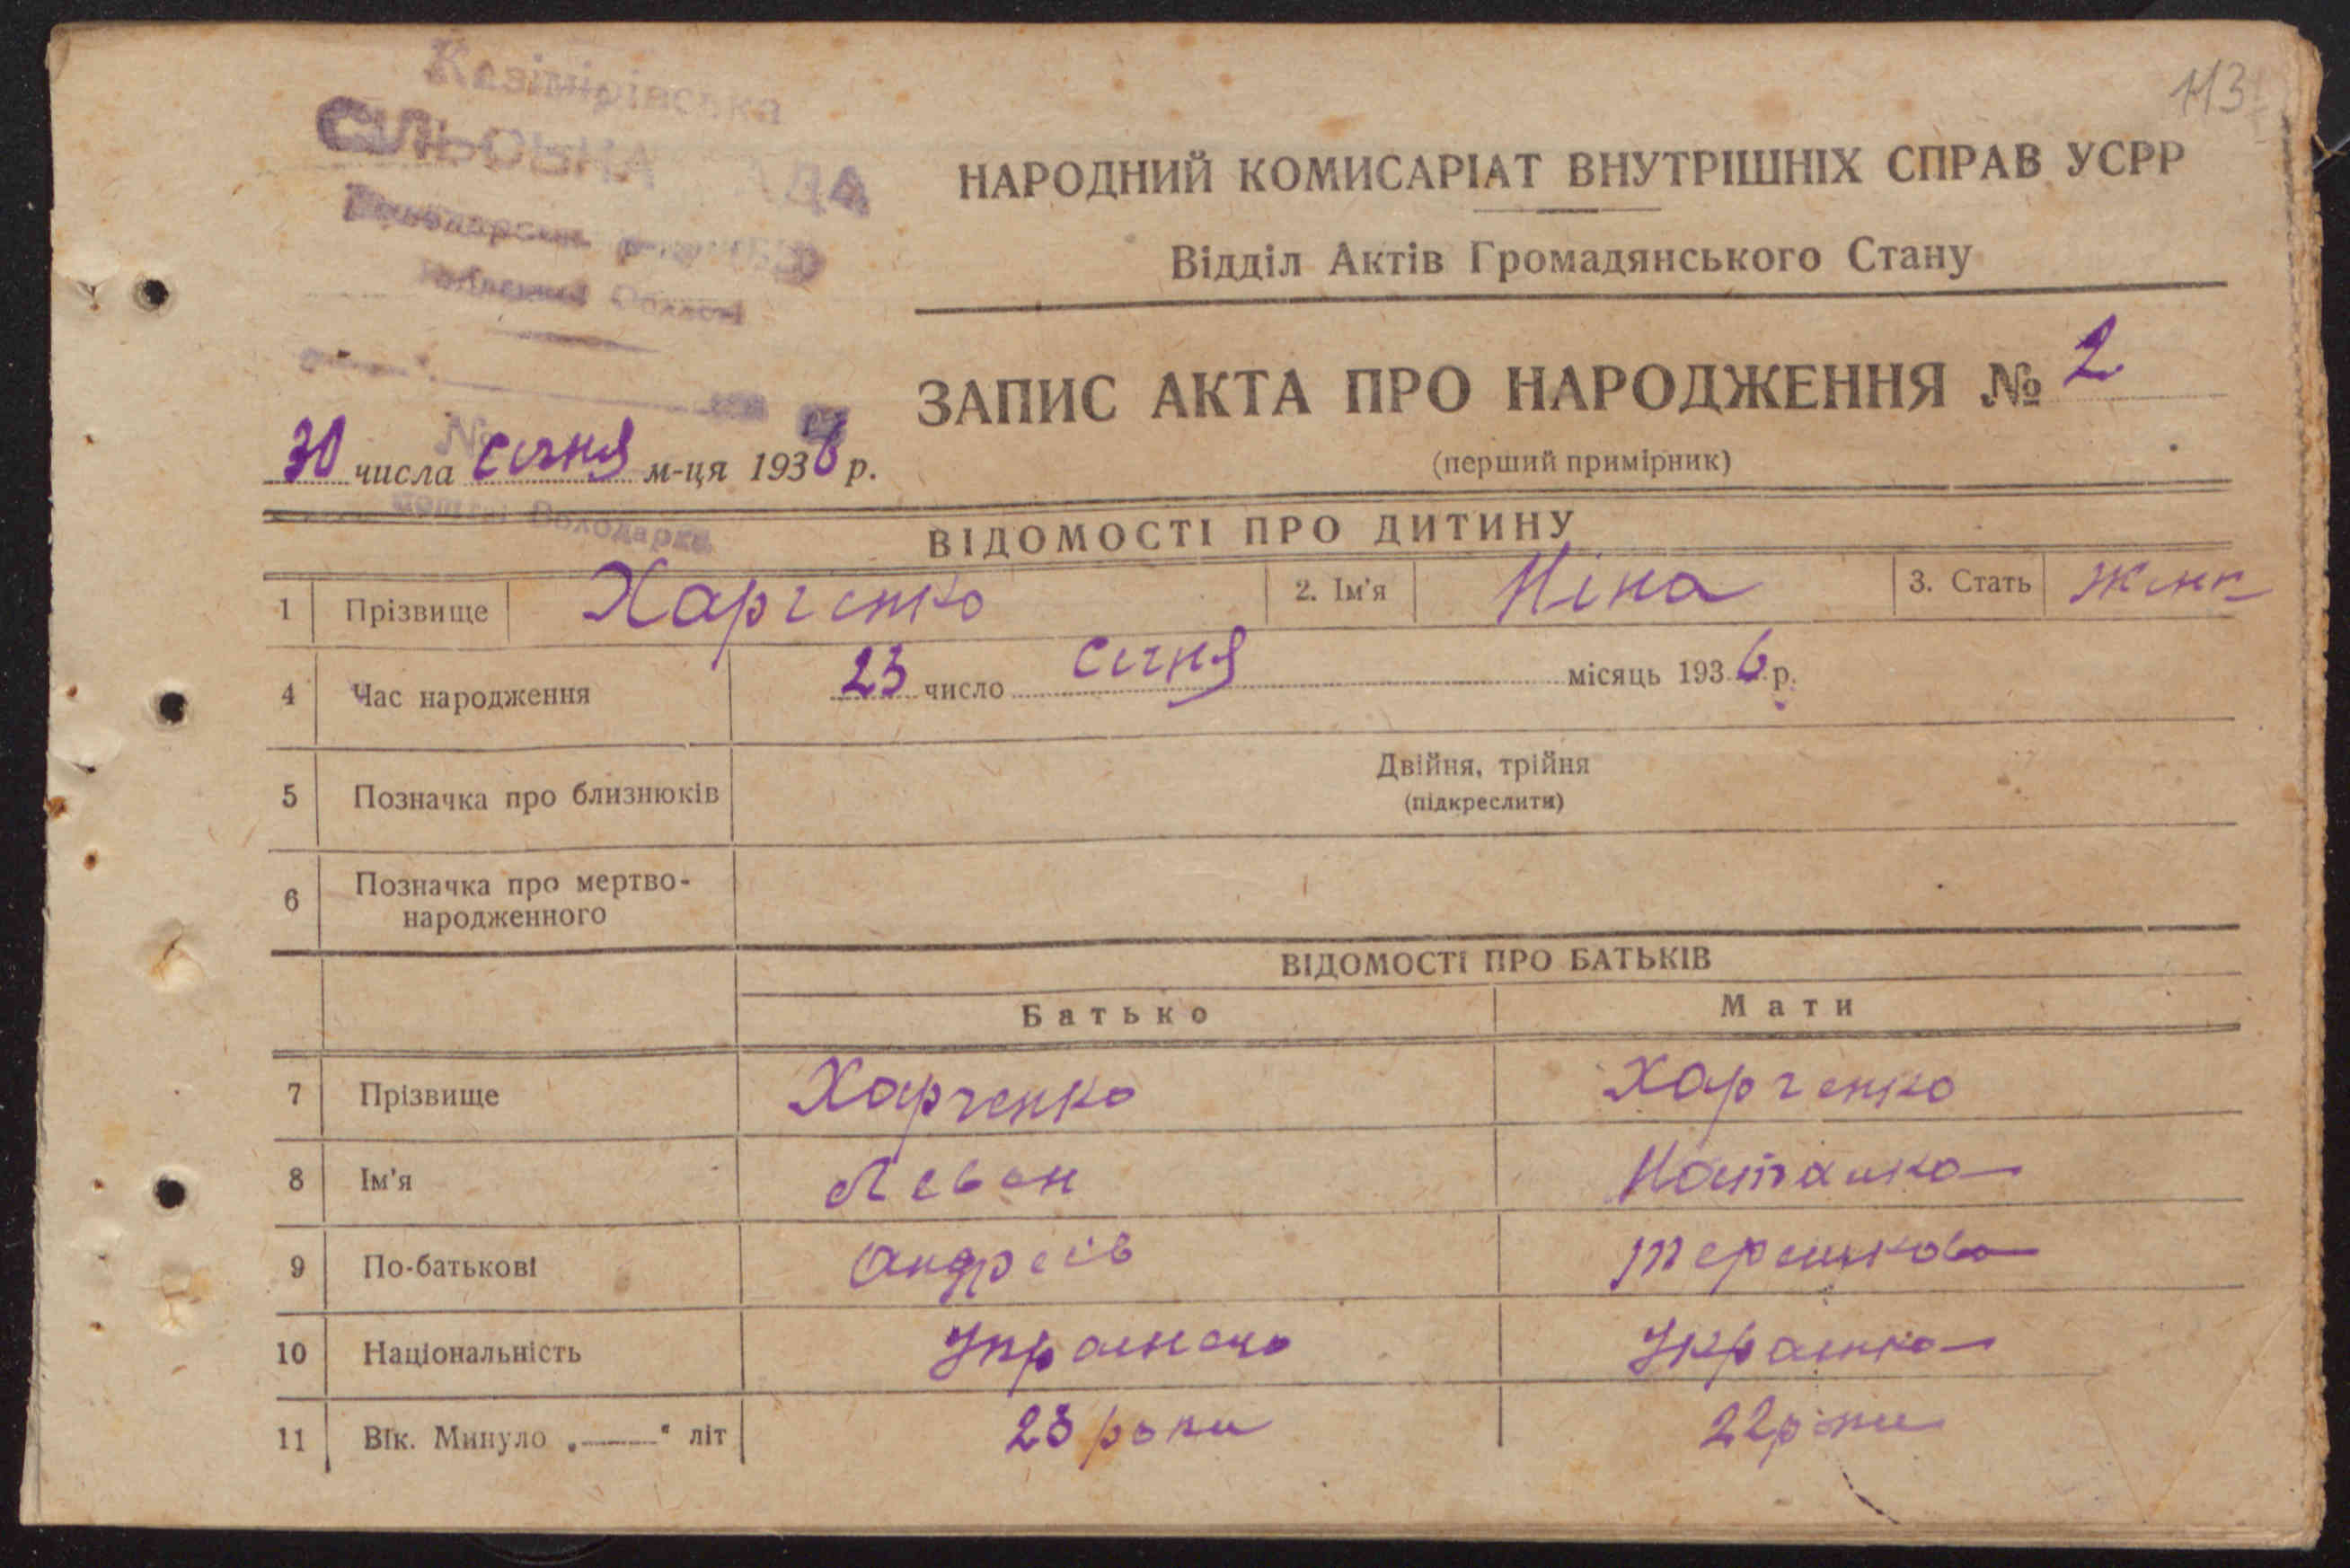 113
Казімірівська
СІЛЬСЬКА РАДА
Області
НАРОДНИЙ КОМИСАРІАТ ВНУТРІШНІХ СПРАВ УСРР
Відділ Актів Громадянського Стану
ЗАПИС АКТА ПРО НАРОДЖЕННЯ № 2
(перший примірник)
№
30 числа січня м-ця 1936 р.
пошта Володарка
ВІДОМОСТІ ПРО ДИТИНУ
1 Прізвище Харченко 2. Ім'я Ніна 3. Стать жінк
4 Час народження 23 число січня місяць 1936 р.
5 Позначка про близнюків Двійня, трійня
(підкреслити)
6 Позначка про мертво-
народженного
ВІДОМОСТІ ПРО БАТЬКІВ
Батько Мати
7 Прізвище Харченко Харченко
8 Ім'я Леван Наталка
9 По-батькові Андреів Терешкова
10 Національність Українець Українка
11 Вік. Минуло „——“ літ 23 роки 22 роки